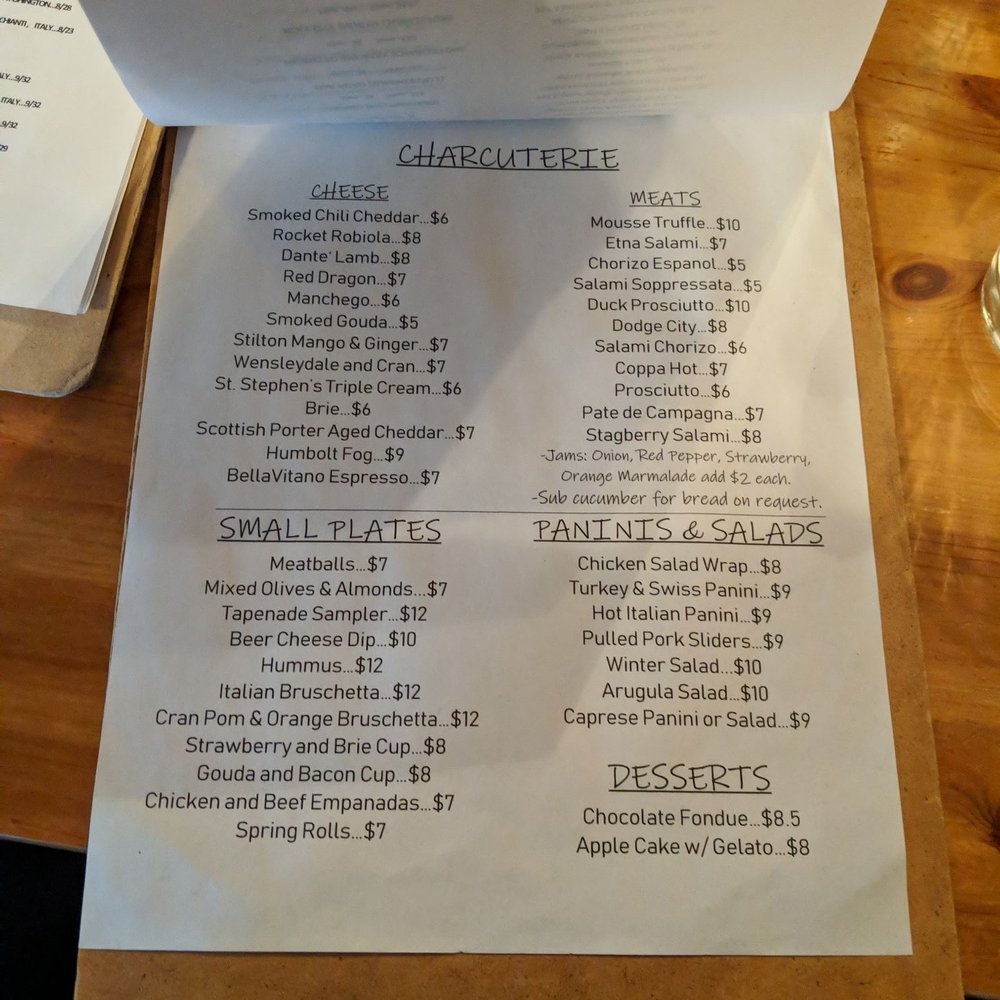 SHINGTON...8/28
CHIANTI, ITALY...8/23
ALY...9/32
ITALY...9/32
...9/32
CHARCUTERIE
CHEESE
Smoked Chili Cheddar...$6
Rocket Robiola...$8
Dante' Lamb...$8
Red Dragon...$7
Manchego...$6
Smoked Gouda...$5
Stilton Mango & Ginger...$7
Wensleydale and Cran...$7
St. Stephen's Triple Cream...$6
Brie...$6
Scottish Porter Aged Cheddar...$7
Humbolt Fog...$9
BellaVitano Espresso...$7
MEATS
Mousse Truffle...$10
Etna Salami...$7
Chorizo Espanol...$5
Salami Soppressata...$5
Duck Prosciutto...$10
Dodge City...$8
Salami Chorizo...$6
Coppa Hot...$7
Prosciutto...$6
Pate de Campagna...$7
Stagberry Salami...$8
-Jams: Onion, Red Pepper, Strawberry,
Orange Marmalade add $2 each.
-Sub cucumber for bread on request.
SMALL PLATES
Meatballs...$7
Mixed Olives & Almonds...$7
Tapenade Sampler...$12
Beer Cheese Dip...$10
Hummus...$12
Italian Bruschetta...$12
Cran Pom & Orange Bruschetta...$12
Strawberry and Brie Cup...$8
Gouda and Bacon Cup...$8
Chicken and Beef Empanadas...$7
Spring Rolls...$7
PANINIS & SALADS
Chicken Salad Wrap...$8
Turkey & Swiss Panini...$9
Hot Italian Panini...$9
Pulled Pork Sliders...$9
Winter Salad...$10
Arugula Salad...$10
Caprese Panini or Salad...$9
DESSERTS
Chocolate Fondue...$8.5
Apple Cake w/ Gelato...$8